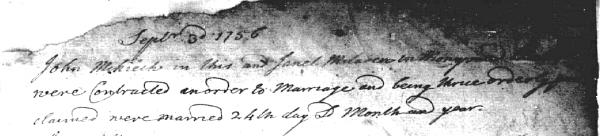 Septbr 3d 1756
John McKiech in this and Janet McLaren in
were Contracted in order to Marriage and being thrice orderly
claimed were married 24th day D Month and year.